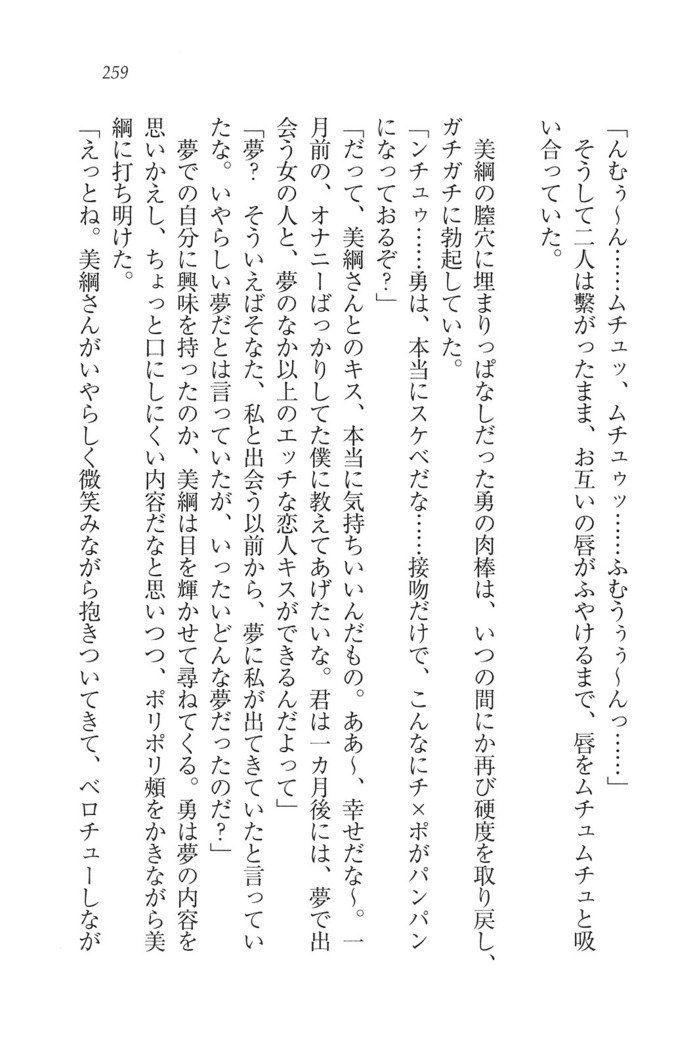 259
「んむぅ～ん……ムチュッ、ムチュゥッ……ふむうぅぅ～んっ……」
そうして二人は繋がったまま、お互いの唇がふやけるまで、唇をムチュムチュと吸
い合っていた。
美綱の膣穴に埋まりっぱなしだった勇の肉棒は、いつの間にか再び硬度を取り戻し、
ガチガチに勃起していた。
「ンチュゥ……勇は、本当にスケベだな……接吻だけで、こんなにチ×ポがパンパン
になっておるぞ？」
「だって、美綱さんとのキス、本当に気持ちいいんだもの。ああ～、幸せだな～。一
月前の、オナニーばっかりしてた僕に教えてあげたいな。君は一カ月後には、夢で出
会う女の人と、夢のなか以上のエッチな恋人キスができるんだよって」
「夢？　そういえばそなた、私と出会う以前から、夢に私が出てきていたと言ってい
たな。いやらしい夢だとは言っていたが、いったいどんな夢だったのだ？」
夢での自分に興味を持ったのか、美綱は目を輝かせて尋ねてくる。勇は夢の内容を
思いかえし、ちょっと口にしにくい内容だなと思いつつ、ポリポリ頰をかきながら美
綱に打ち明けた。
「えっとね。美綱さんがいやらしく微笑みながら抱きついてきて、ベロチューしなが